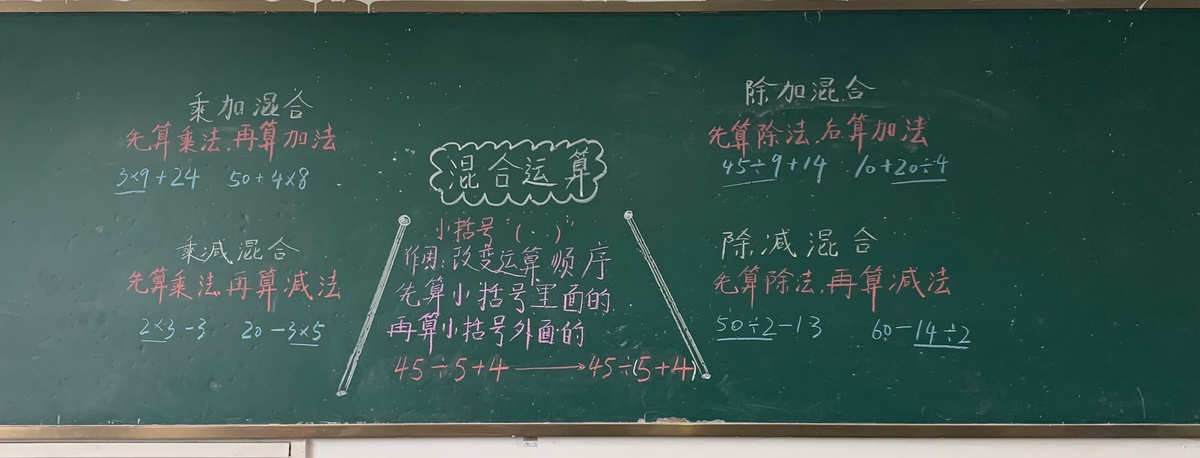 乘加混合
先算乘法,再算加法
3×9+24 50+4×8
乘减混合
先算乘法,再算减法
2×3-3 20-3×5
混合运算
小括号“(..)”
作用:改变运算顺序
先算小括号里面的
再算小括号外面的
45÷5+4→45÷(5+4)
除加混合
先算除法,后算加法
45÷9+14 10+20÷4
除减混合
先算除法,再算减法
50÷2-13 60-14÷2